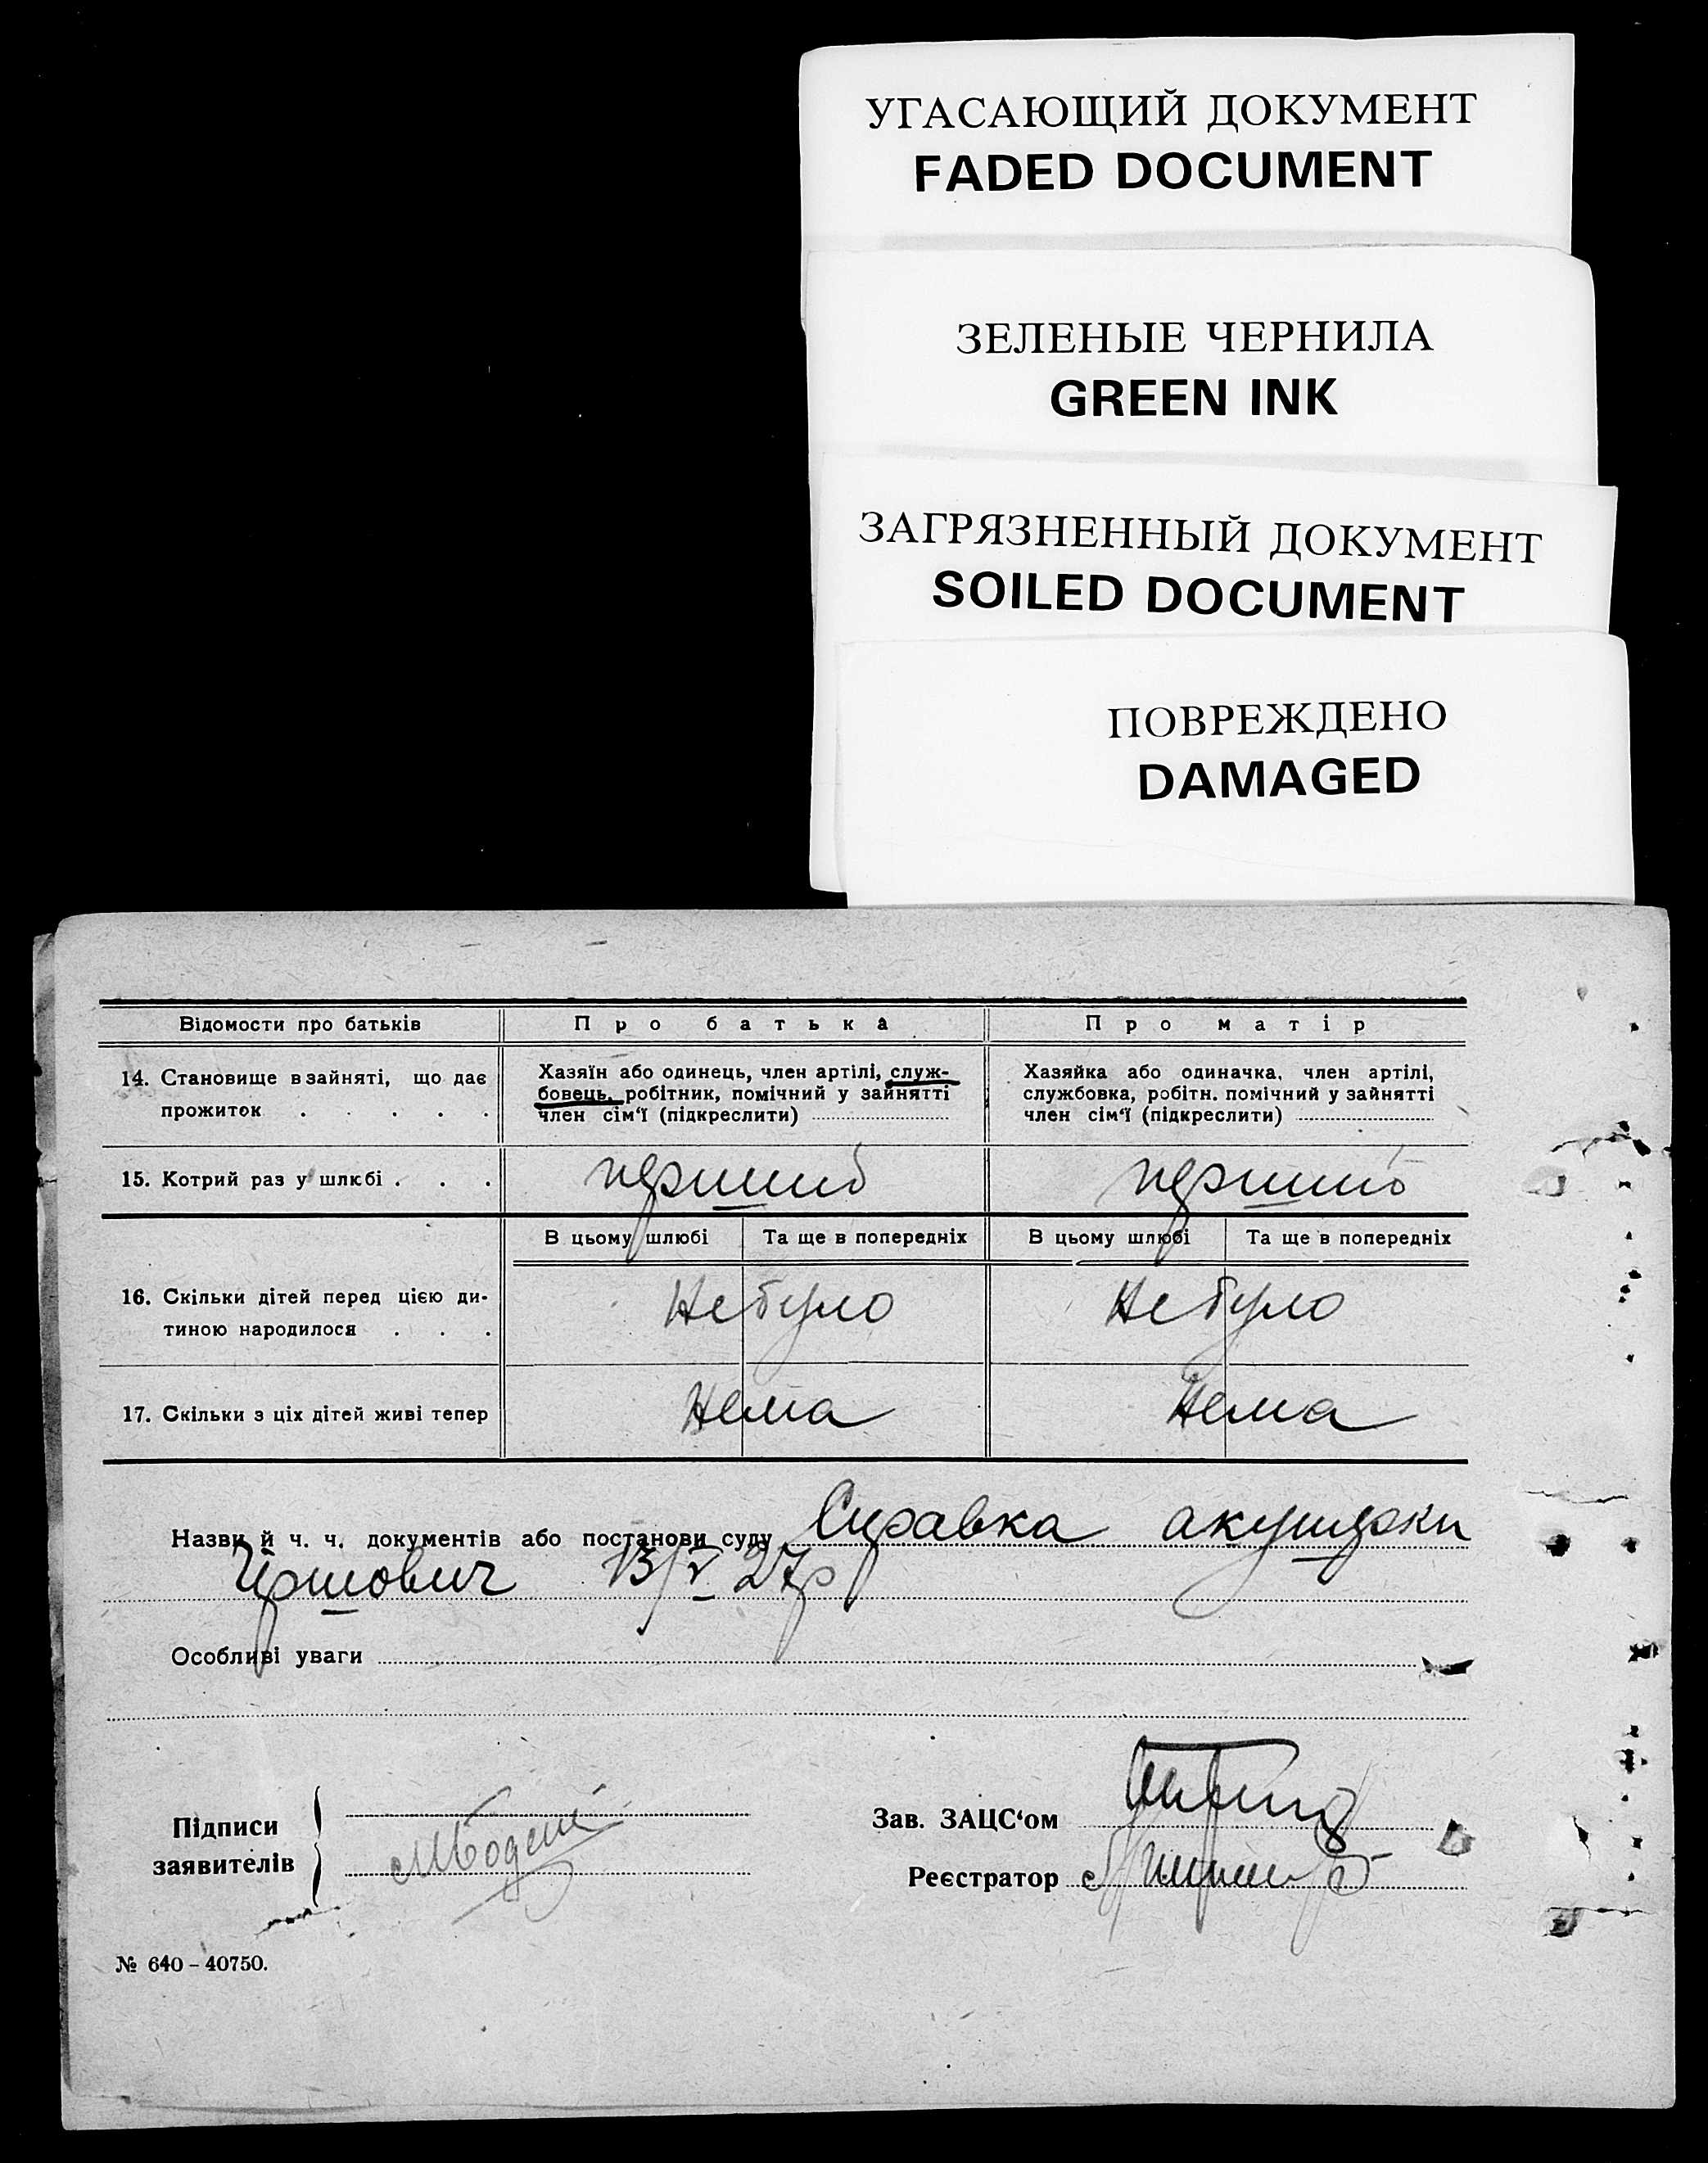 УГАСАЮЩИЙ ДОКУМЕНТ
FADED DOCUMENT
ЗЕЛЕНЫЕ ЧЕРНИЛА
GREEN INK
ЗАГРЯЗНЕННЫЙ ДОКУМЕНТ
SOILED DOCUMENT
ПОВРЕЖДЕНО
DAMAGED
Відомости про батьків Про батька Про матір
14. Становище в зайняті, що дає прожиток . . . . .
Хазяїн або одинець, член артілі, служ-
бовець, робітник, помічний у зайнятті
член сім'ї (підкреслити)
Хазяйка або одиначка, член артілі,
службовка, робітн. помічний у зайнятті
член сім'ї (підкреслити)
15. Котрий раз у шлюбі . . . перший перший
В цьому шлюбі Та ще в попередніх В цьому шлюбі Та ще в попередніх
16. Скільки дітей перед цією ди-
тиною народилося . . . Не було Не було
17. Скільки з ціх дітей живі тепер Нема Нема
Назви й ч. ч. документів або постанови суду Справка акушерки
13/V 27р
Особливі уваги
Підписи
заявителів
Зав. ЗАЦС'ом
Реєстратор
№ 640 – 40750.